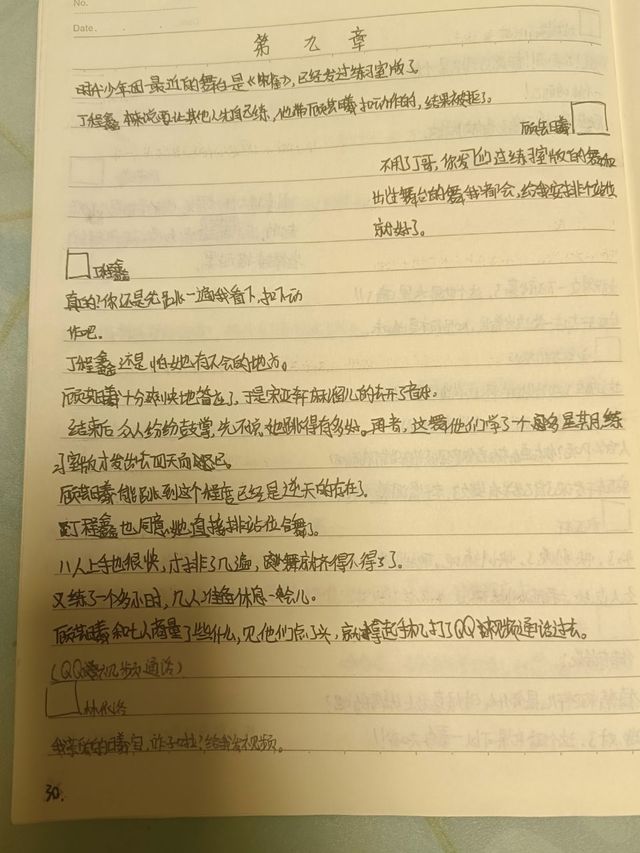 No.
Date.
第九章
时代少年团最近的舞台是《朱雀》，已经发过练习室版了。
丁程鑫本来说要让其他人先自己练，他带顾芸曦扣动作的，结果被拒了。
顾芸曦
不用了丁哥，你发们过练习室版的舞和
出过舞台的舞我都会，给我安排个站位
就好了。
丁程鑫
真的？你还是先跳一遍我看下，扣下动
作吧。
丁程鑫还是怕她也有不会的地方。
顾芸曦十分爽快地答应了，于是宋亚轩麻溜儿的去开了音乐。
结束后众人纷纷鼓掌，先不说她跳得有多好。再者，这舞他们学了一个多星期，练
习室版才发出去四天而已。
顾芸曦能跳到这个程度已经是逆天的存在了。
丁程鑫也同意她直接排站位合舞了。
八人上手也很快，才排了几遍，跳舞就齐得不得了了。
又练了一个多小时，几人准备休息一会儿。
顾芸曦和七人商量了些什么，见他们点了头，就拿起手机打了QQ视频通话过去。
（QQ视频通话）
我亲爱的曦宝，咋了啦？给我发视频。
30.